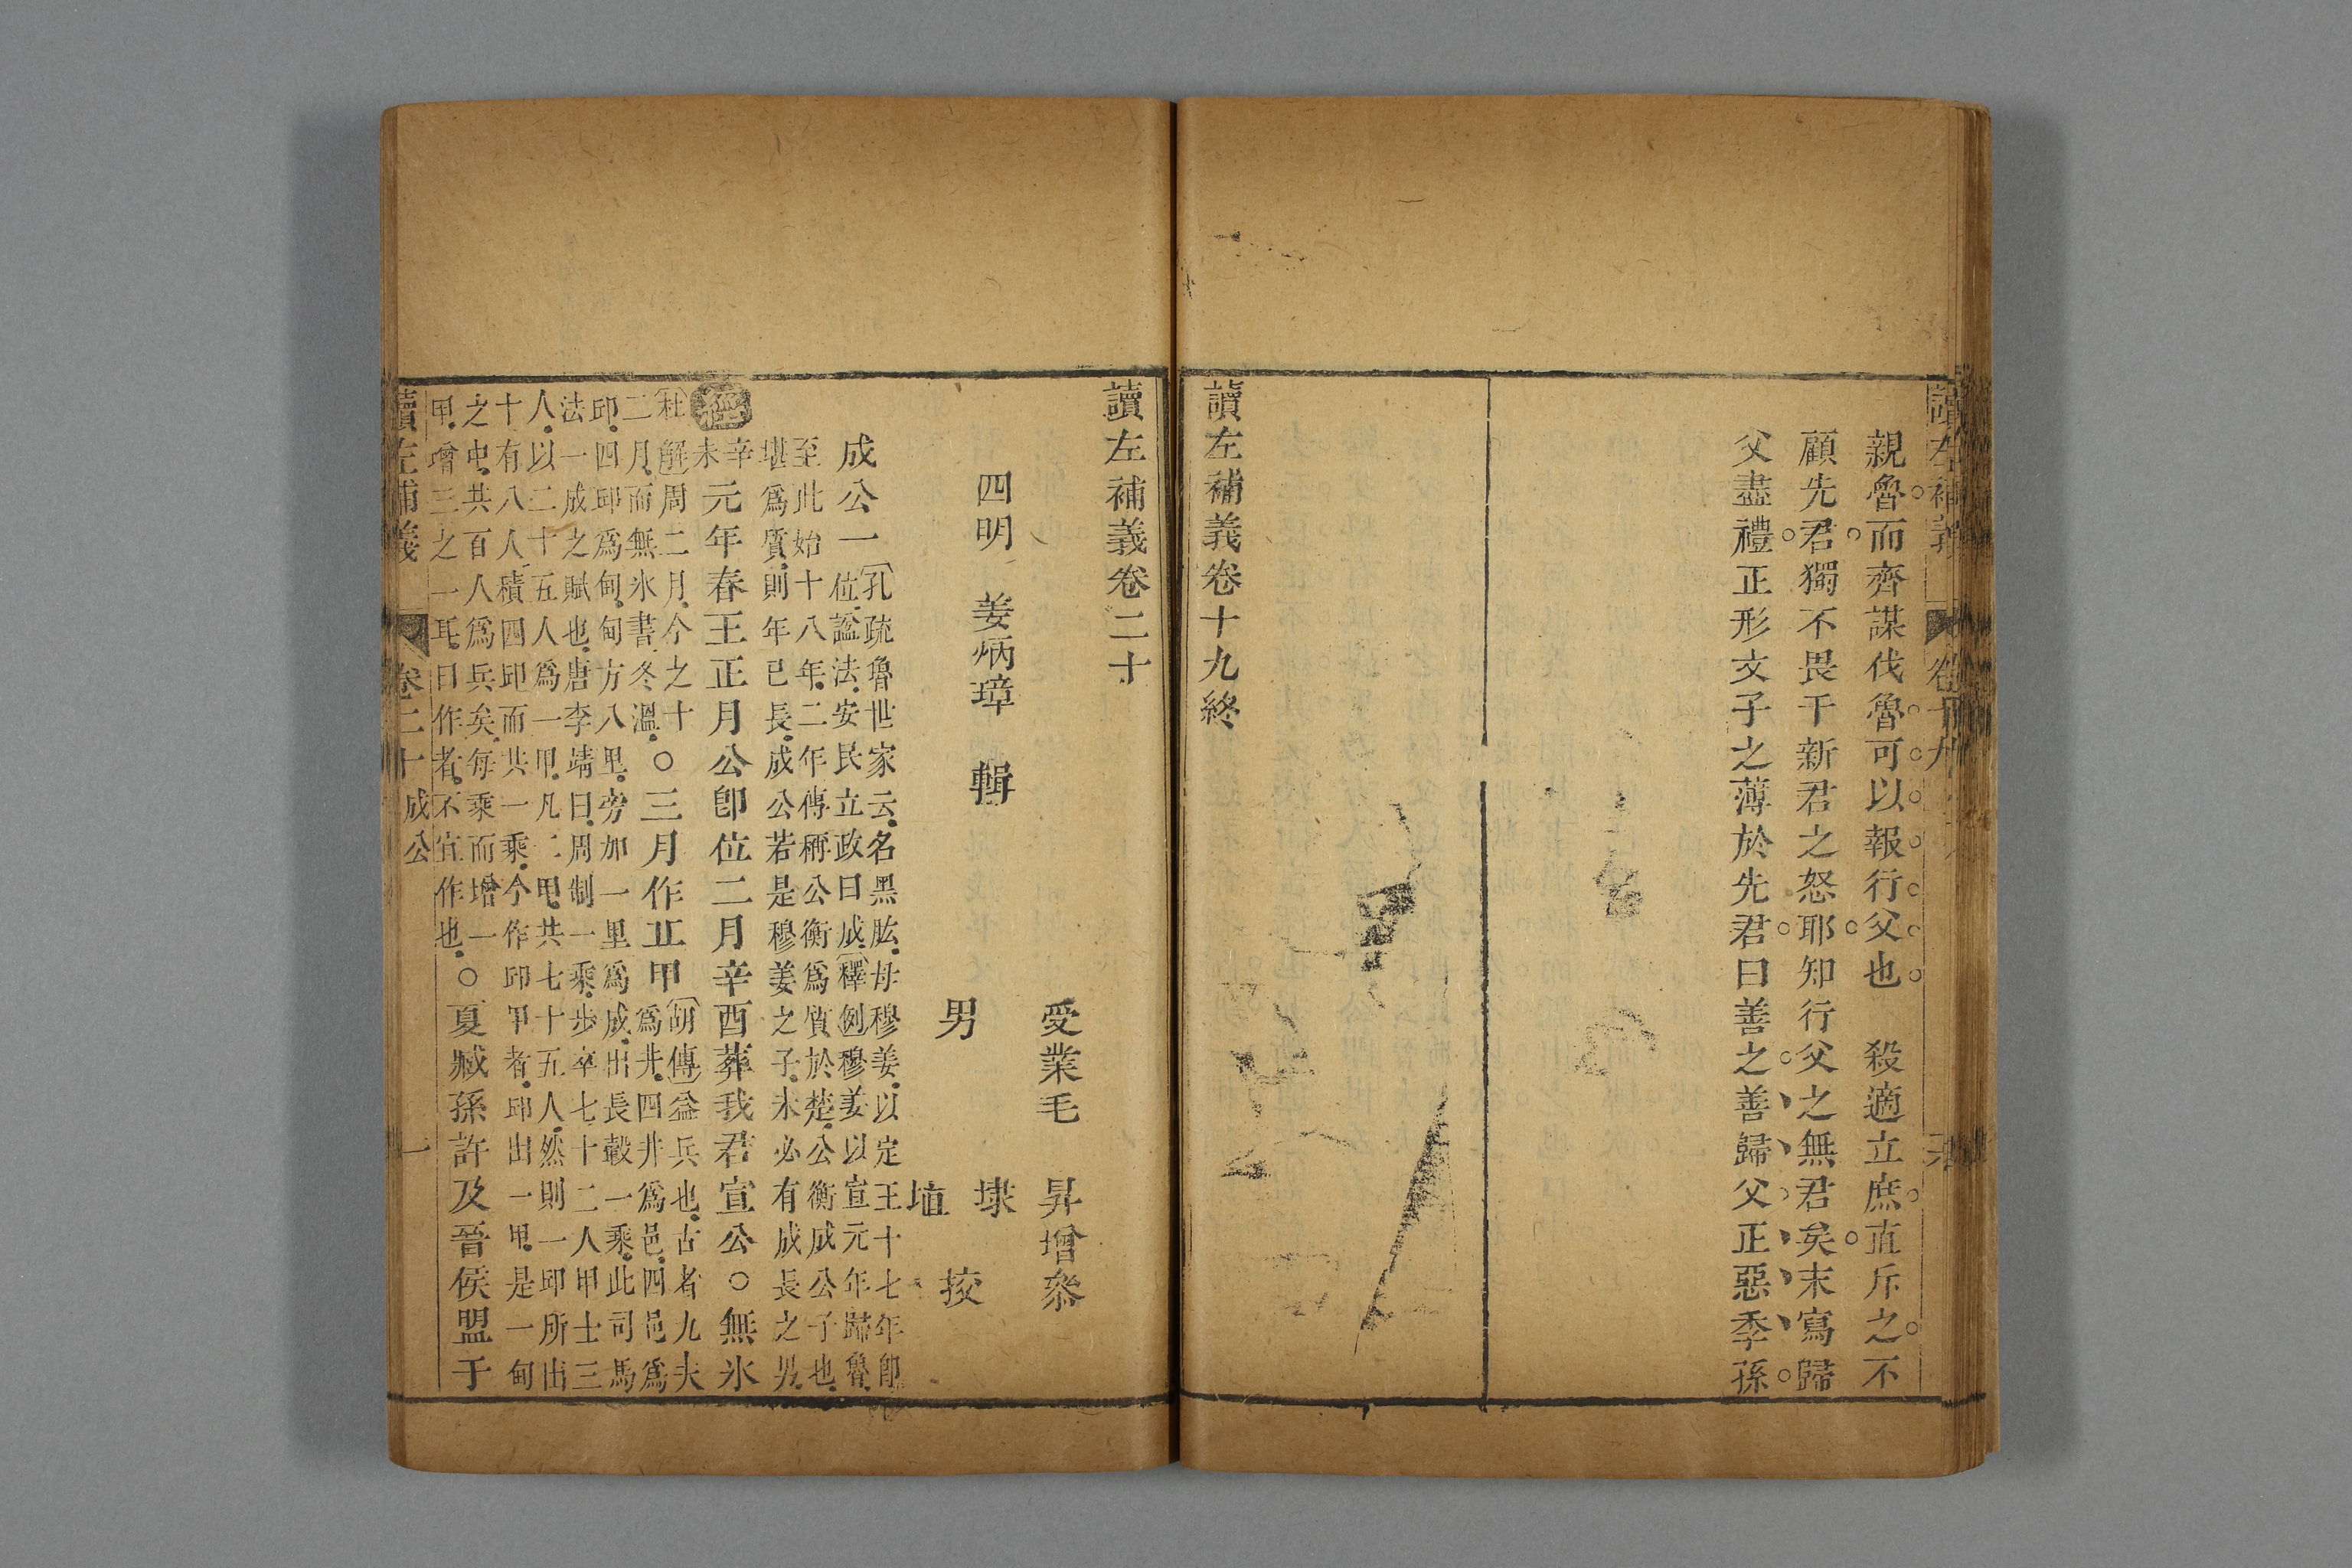 讀左補義
卷十九
親魯而齊謀伐魯可以報行父也　殺適立庶直斥之不
顧先君獨不畏干新君之怒耶知行父之無君矣末寫歸
父盡禮正形文子之薄於先君曰善之善歸父正惡季孫
讀左補義卷十九終
讀左補義卷二十
受業毛　昇增叅
四明　姜炳璋　輯
男　埭
埴　挍
成公一
孔疏魯世家云名黑肱母穆姜以定王十七年卽
位謚法安民立政曰成釋例穆姜以宣元年歸魯
至此始十八年二年傳稱公衡爲質於楚公衡成公子也
堪爲質則年已長成公若是穆姜之子未必有成長之男
經
辛
未
元年春王正月公卽位二月辛酉葬我君宣公○無氷
杜解周二月今之十
二月而無氷書冬溫
○三月作丘甲
胡傳益兵也古者九夫
爲井四井爲邑四邑爲
邱四邱爲甸甸方八里旁加一里爲成出長轂一乘此司馬
法一成之賦也唐李靖曰周制一乘步卒七十二人甲士三
人以二十五人爲一甲凡三甲共七十五人然則一邱所出
十有八人積四邱而共一乘今作邱甲者邱出一甲是一甸
之中共百人爲兵矣每乘而增一
甲增三之一耳曰作者不宜作也
○夏臧孫許及晉侯盟于
讀左補義
卷二十
成公
一